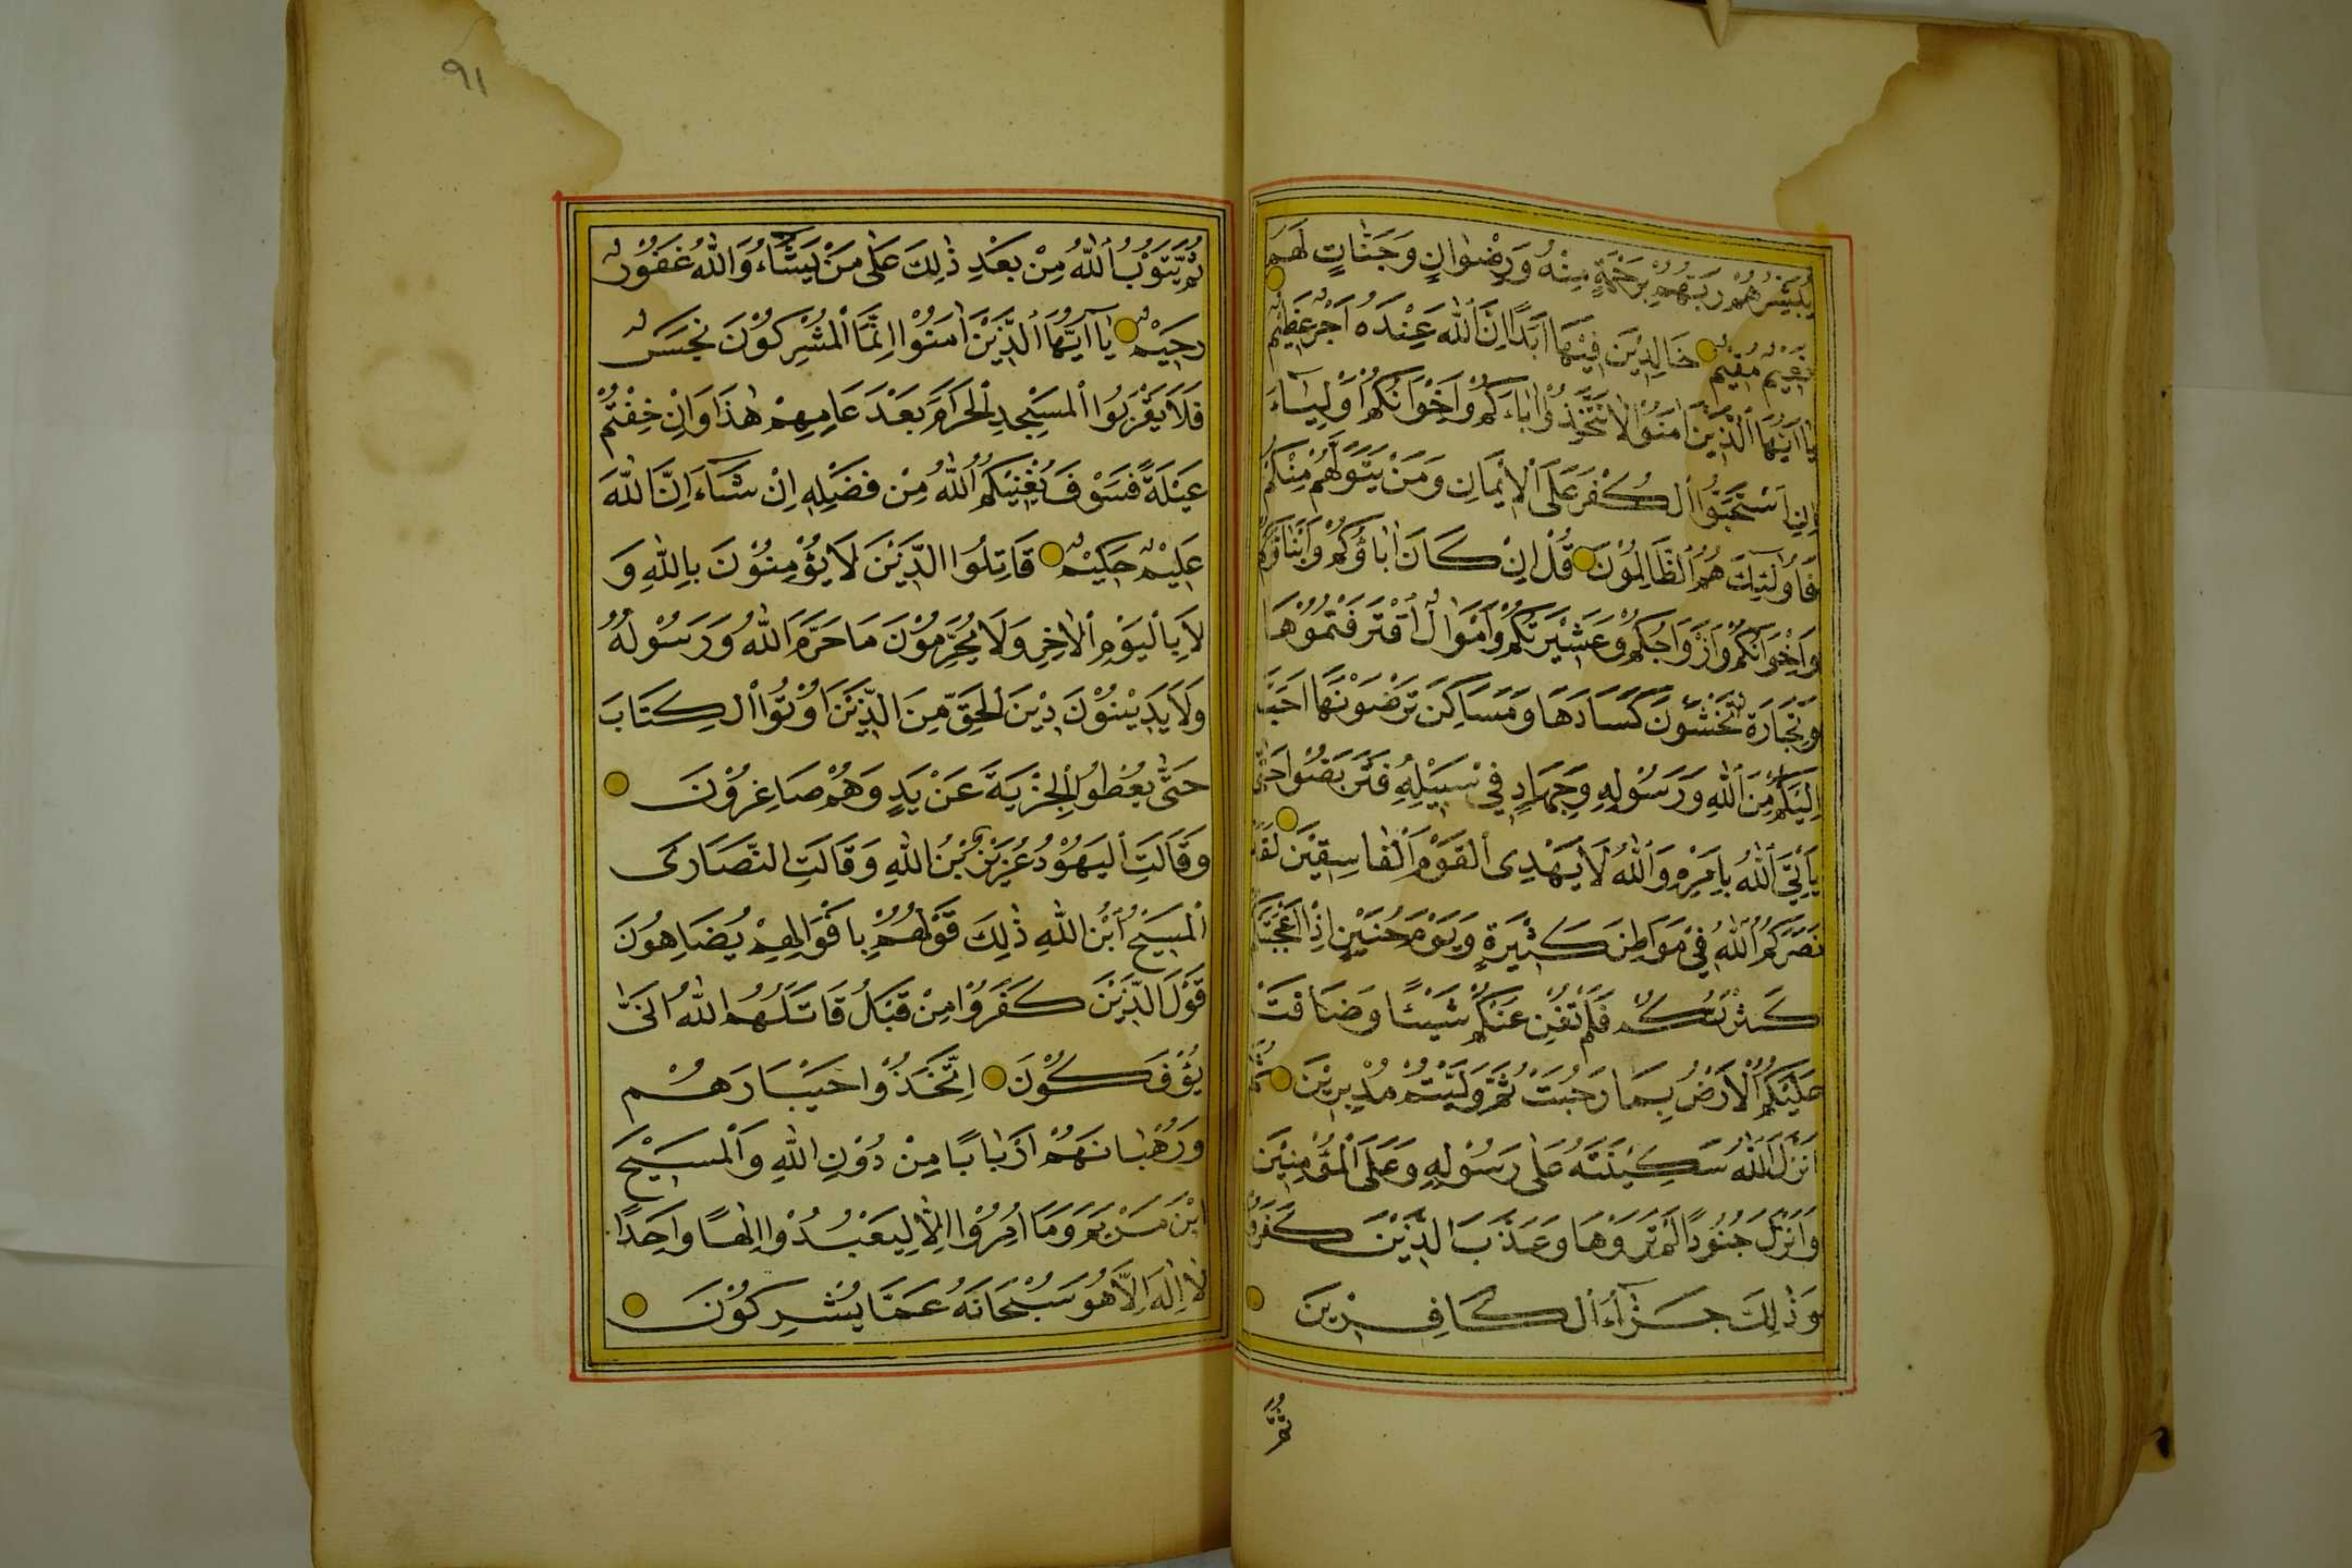 يُبَشِّرُهُمْ رَبُّهُمْ بِرَحْمَةٍ مِنْهُ وَرِضْوَانٍ وَجَنَّاتٍ لَهُمْ
نَعِيمٌ مُقِيمٌ خَالِدِينَ فِيهَا أَبَدًا إِنَّ اللهَ عِنْدَهُ أَجْرٌ عَظِيمٌ
يَا أَيُّهَا الَّذِينَ آمَنُوا لَا تَتَّخِذُوا آبَاءَكُمْ وَإِخْوَانَكُمْ أَوْلِيَاءَ
إِنِ اسْتَحَبُّوا الْكُفْرَ عَلَى الْإِيمَانِ وَمَنْ يَتَوَلَّهُمْ مِنْكُمْ
فَأُولَئِكَ هُمُ الظَّالِمُونَ قُلْ إِنْ كَانَ آبَاؤُكُمْ وَأَبْنَاؤُكُمْ
وَإِخْوَانُكُمْ وَأَزْوَاجُكُمْ وَعَشِيرَتُكُمْ وَأَمْوَالٌ اقْتَرَفْتُمُوهَا
وَتِجَارَةٌ تَخْشَوْنَ كَسَادَهَا وَمَسَاكِنَ تَرْضَوْنَهَا أَحَبَّ
إِلَيْكُمْ مِنَ اللهِ وَرَسُولِهِ وَجِهَادٍ فِي سَبِيلِهِ فَتَرَبَّصُوا حَتَّى
يَأْتِيَ اللهُ بِأَمْرِهِ وَاللهُ لَا يَهْدِي الْقَوْمَ الْفَاسِقِينَ لَقَدْ
نَصَرَكُمُ اللهُ فِي مَوَاطِنَ كَثِيرَةٍ وَيَوْمَ حُنَيْنٍ إِذْ أَعْجَبَتْكُمْ
كَثْرَتُكُمْ فَلَمْ تُغْنِ عَنْكُمْ شَيْئًا وَضَاقَتْ
عَلَيْكُمُ الْأَرْضُ بِمَا رَحُبَتْ ثُمَّ وَلَّيْتُمْ مُدْبِرِينَ ثُمَّ
أَنْزَلَ اللهُ سَكِينَتَهُ عَلَى رَسُولِهِ وَعَلَى الْمُؤْمِنِينَ
وَأَنْزَلَ جُنُودًا لَمْ تَرَوْهَا وَعَذَّبَ الَّذِينَ كَفَرُوا
وَذَلِكَ جَزَاءُ الْكَافِرِينَ
ثُمَّ
٩١
ثُمَّ يَتُوبُ اللهُ مِنْ بَعْدِ ذَلِكَ عَلَى مَنْ يَشَاءُ وَاللهُ غَفُورٌ
رَحِيمٌ يَا أَيُّهَا الَّذِينَ آمَنُوا إِنَّمَا الْمُشْرِكُونَ نَجَسٌ
فَلَا يَقْرَبُوا الْمَسْجِدَ الْحَرَامَ بَعْدَ عَامِهِمْ هَذَا وَإِنْ خِفْتُمْ
عَيْلَةً فَسَوْفَ يُغْنِيكُمُ اللهُ مِنْ فَضْلِهِ إِنْ شَاءَ إِنَّ اللهَ
عَلِيمٌ حَكِيمٌ قَاتِلُوا الَّذِينَ لَا يُؤْمِنُونَ بِاللهِ وَ
لَا بِالْيَوْمِ الْآخِرِ وَلَا يُحَرِّمُونَ مَا حَرَّمَ اللهُ وَرَسُولُهُ
وَلَا يَدِينُونَ دِينَ الْحَقِّ مِنَ الَّذِينَ أُوتُوا الْكِتَابَ
حَتَّى يُعْطُوا الْجِزْيَةَ عَنْ يَدٍ وَهُمْ صَاغِرُونَ
وَقَالَتِ الْيَهُودُ عُزَيْرٌ ابْنُ اللهِ وَقَالَتِ النَّصَارَى
الْمَسِيحُ ابْنُ اللهِ ذَلِكَ قَوْلُهُمْ بِأَفْوَاهِهِمْ يُضَاهِئُونَ
قَوْلَ الَّذِينَ كَفَرُوا مِنْ قَبْلُ قَاتَلَهُمُ اللهُ أَنَّى
يُؤْفَكُونَ اِتَّخَذُوا أَحْبَارَهُمْ
وَرُهْبَانَهُمْ أَرْبَابًا مِنْ دُونِ اللهِ وَالْمَسِيحَ
ابْنَ مَرْيَمَ وَمَا أُمِرُوا إِلَّا لِيَعْبُدُوا إِلَهًا وَاحِدًا
لَا إِلَهَ إِلَّا هُوَ سُبْحَانَهُ عَمَّا يُشْرِكُونَ